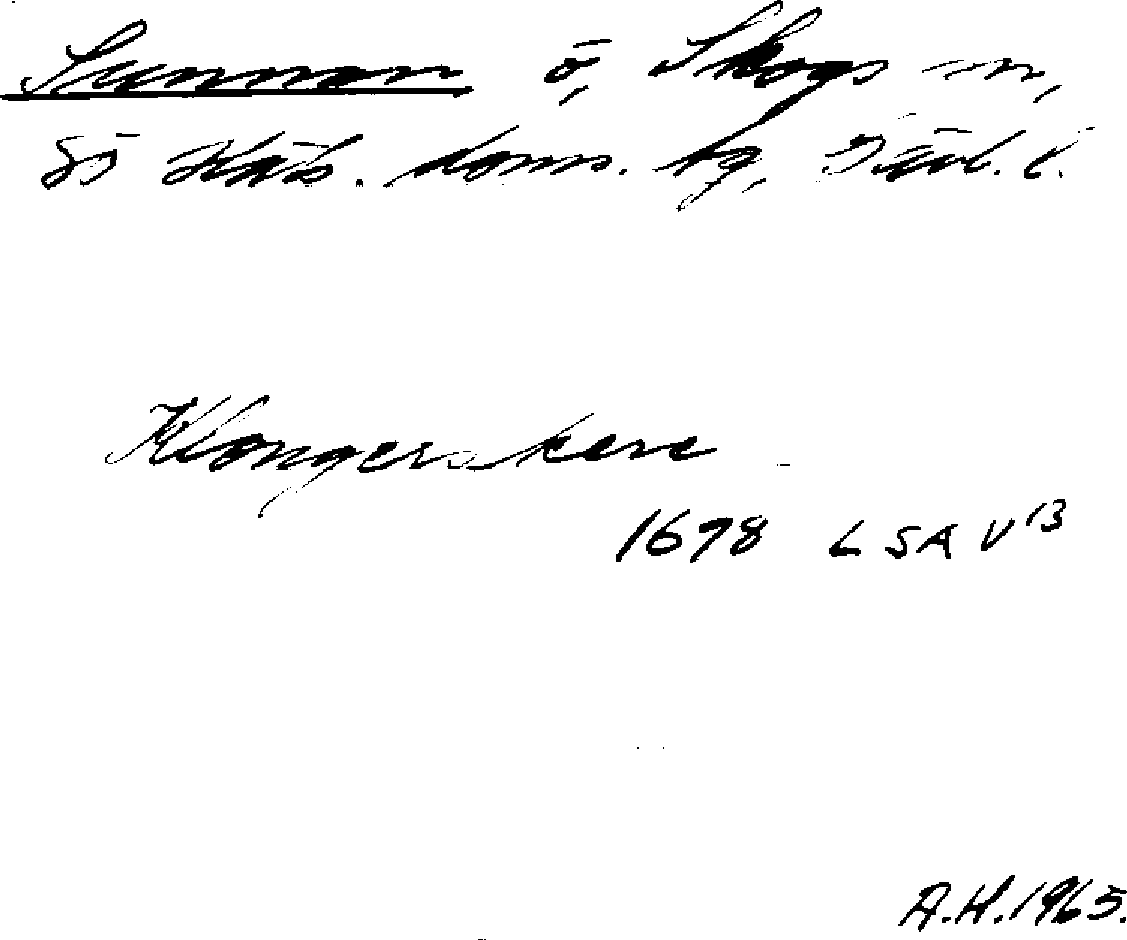 Sunnan ö, Skogs sn,
Sö Häls. doms. tg, Gävl. l.
Klongerskere
1698 LSA V¹³
A.H.1965.